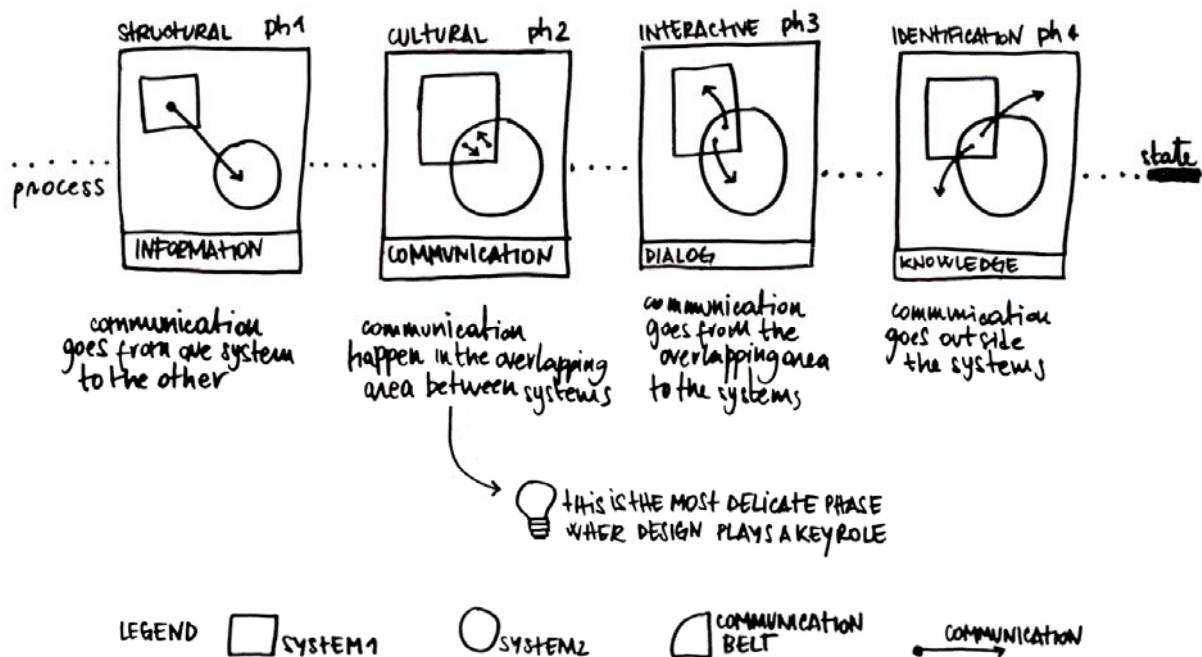 STRUCTURAL ph1
CULTURAL ph2
INTERACTIVE ph3
IDENTIFICATION ph4
process
state
INFORMATION
COMMUNICATION
DIALOG
KNOWLEDGE
communication
goes from one system
to the other
communication
happen in the overlapping
area between systems
communication
goes from the
overlapping area
to the systems
communication
goes outside
the systems
THIS IS THE MOST DELICATE PHASE
WHER DESIGN PLAYS A KEY ROLE
LEGEND
SYSTEM1
SYSTEM2
COMMUNICATION
BELT
COMMUNICATION